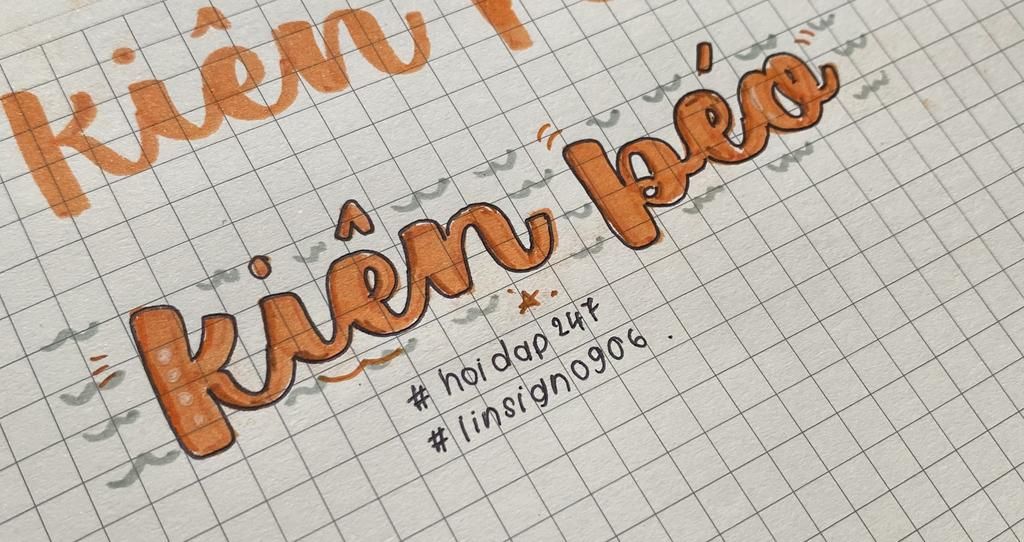 kiên p
kiên péo
# hoidap247
# linsign0906.